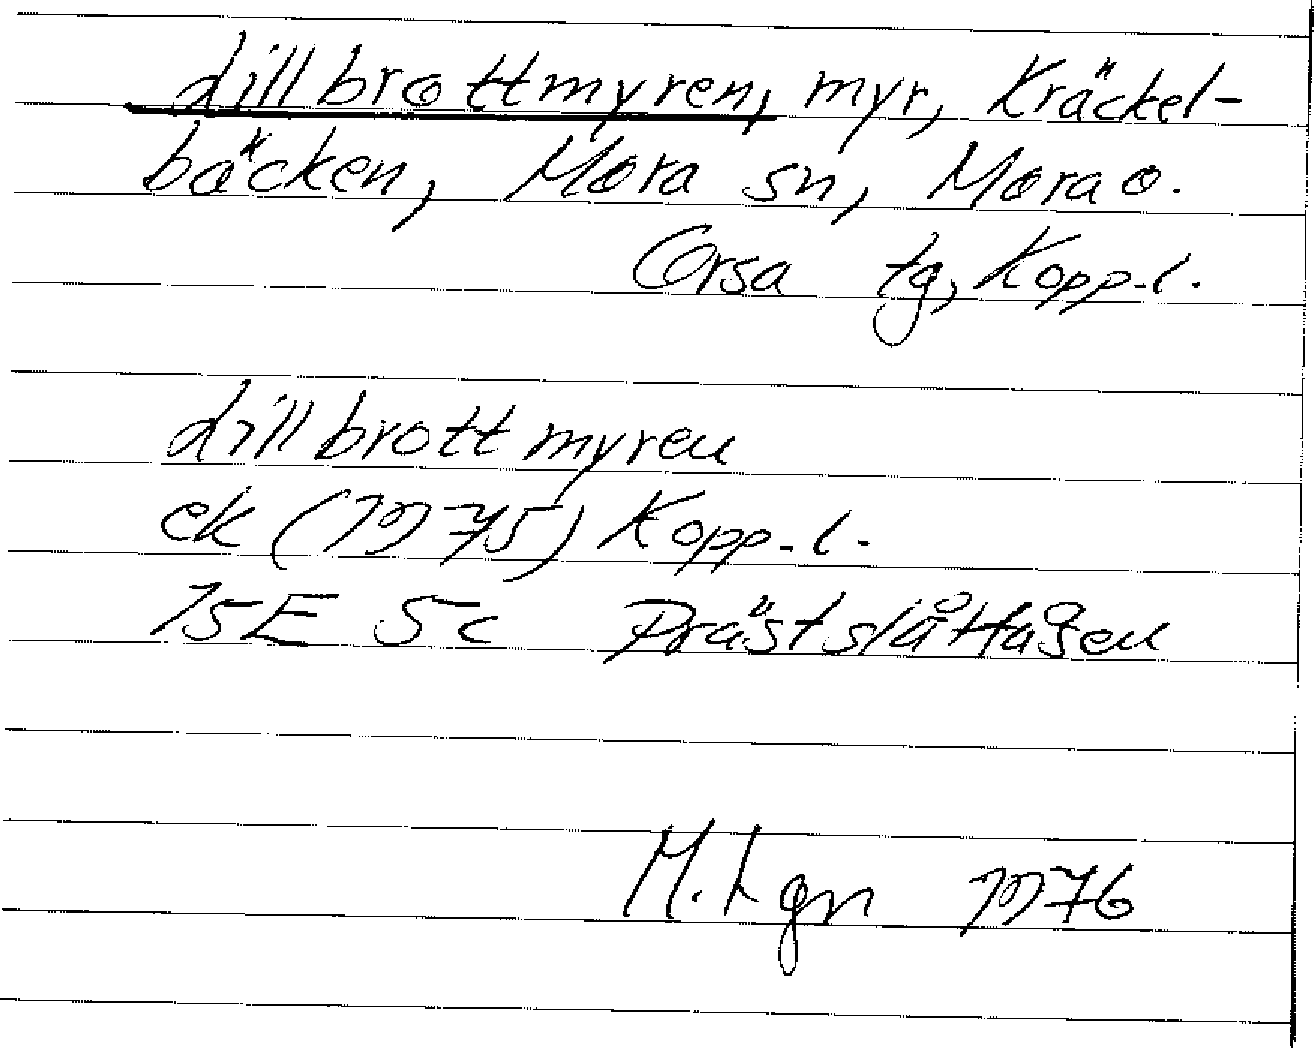 Lillbrottmyren, myr, Kräckel-
bäcken, Mora sn, Mora o.
Orsa tg, Kopp. l.
Lillbrottmyren
ek (1975) Kopp. l.
15E 5c Prästslåttåsen
M. Lgn 1976